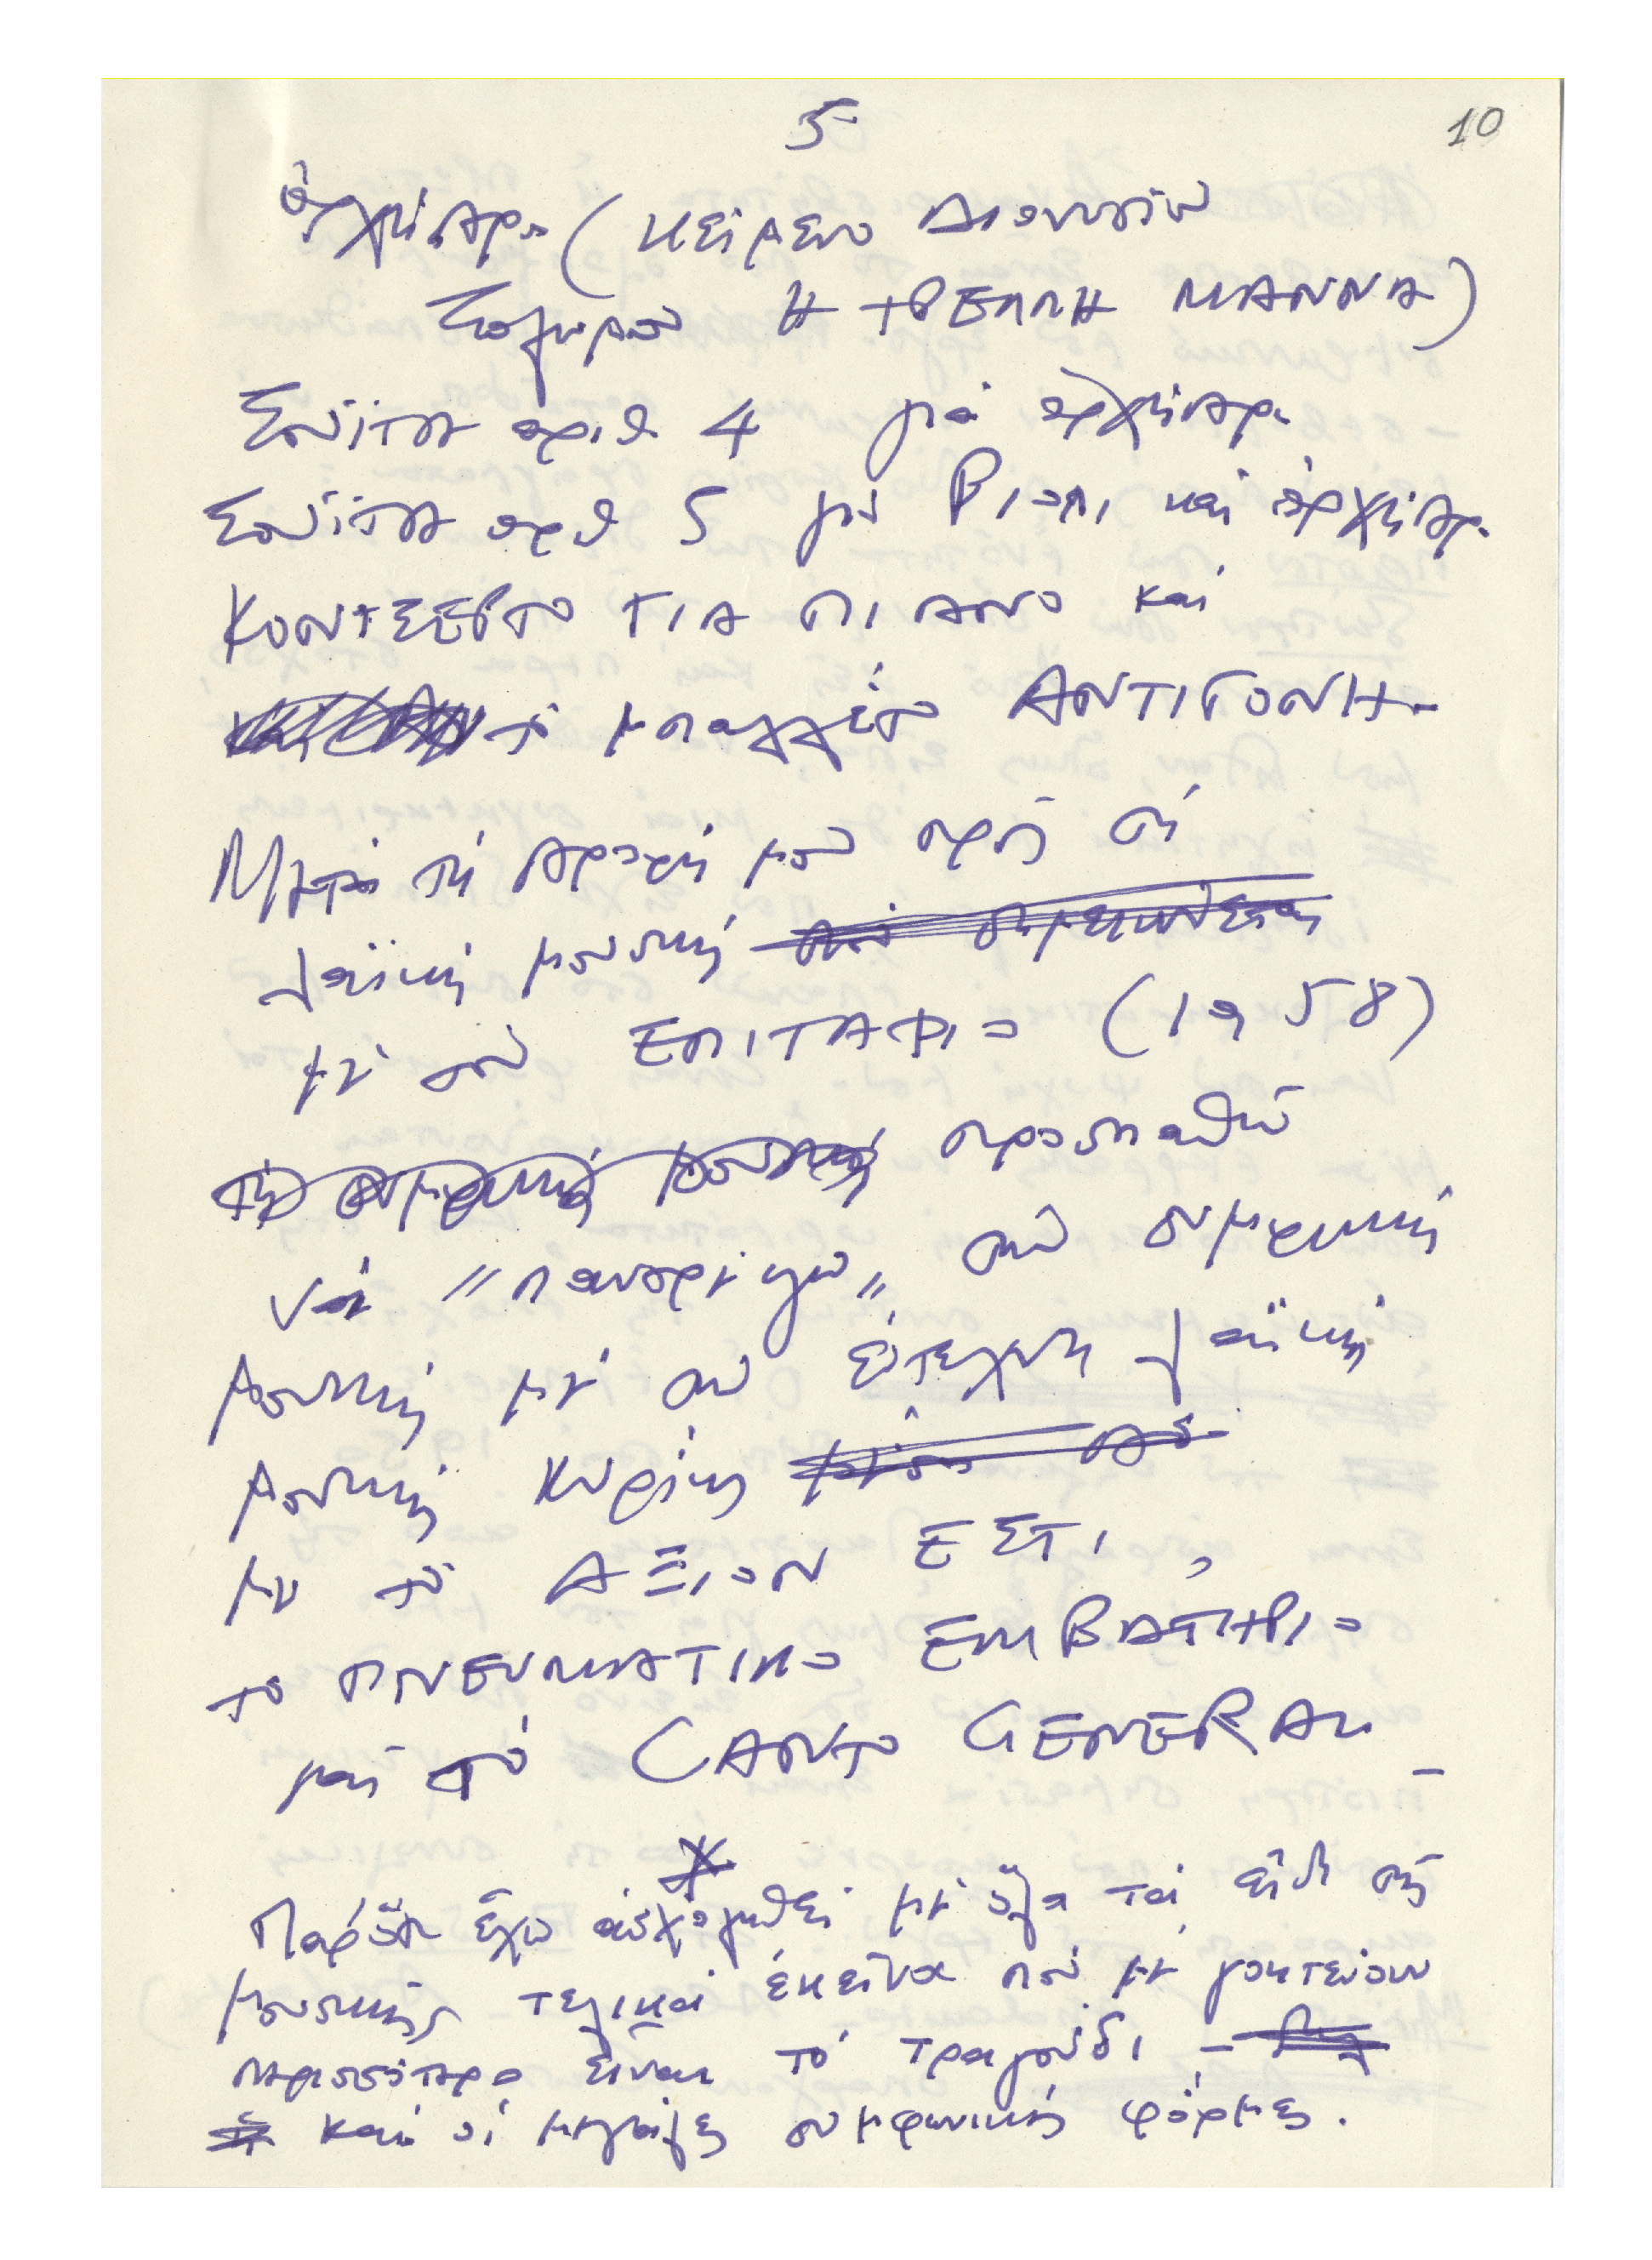 5
10
ὀρχήστρα (κείμενο Διονυσίου
Σολωμοῦ Η ΤΡΕΛΛΗ ΜΑΝΝΑ)
Σουΐτα αριθ. 4 γιά ὀρχήστρα
Σουΐτα αριθ 5 γιά Βιολί καί ὀρχήστρα
ΚΟΝΤΣΕΡΤΟ ΓΙΑ ΠΙΑΝΟ καί
τό μπαλλέτο ΑΝΤΙΓΟΝΗ.
Μετά τή στροφή μου πρός τή
λαϊκή μουσική
μέ τόν ΕΠΙΤΑΦΙΟ (1958)
προσπαθῶ
νά "παντρέψω" τήν συμφωνική
μουσική μέ τήν ἔντεχνη λαϊκή
μουσική κυρίως
με τό ΑΞΙΟΝ ΕΣΤΙ,
τό ΠΝΕΥΜΑΤΙΚΟ ΕΜΒΑΤΗΡΙΟ
καί τό CANTO GENERAL -
Παρότι ἔχω ἀσχοληθεῖ μέ ὅλα τά εἴδη τῆς
μουσικῆς τελικά ἐκεῖνα πού μέ γοητεύουν
περισσότερο εἶναι τό τραγούδι -
καί οἱ μεγάλες συμφωνικές φόρμες.